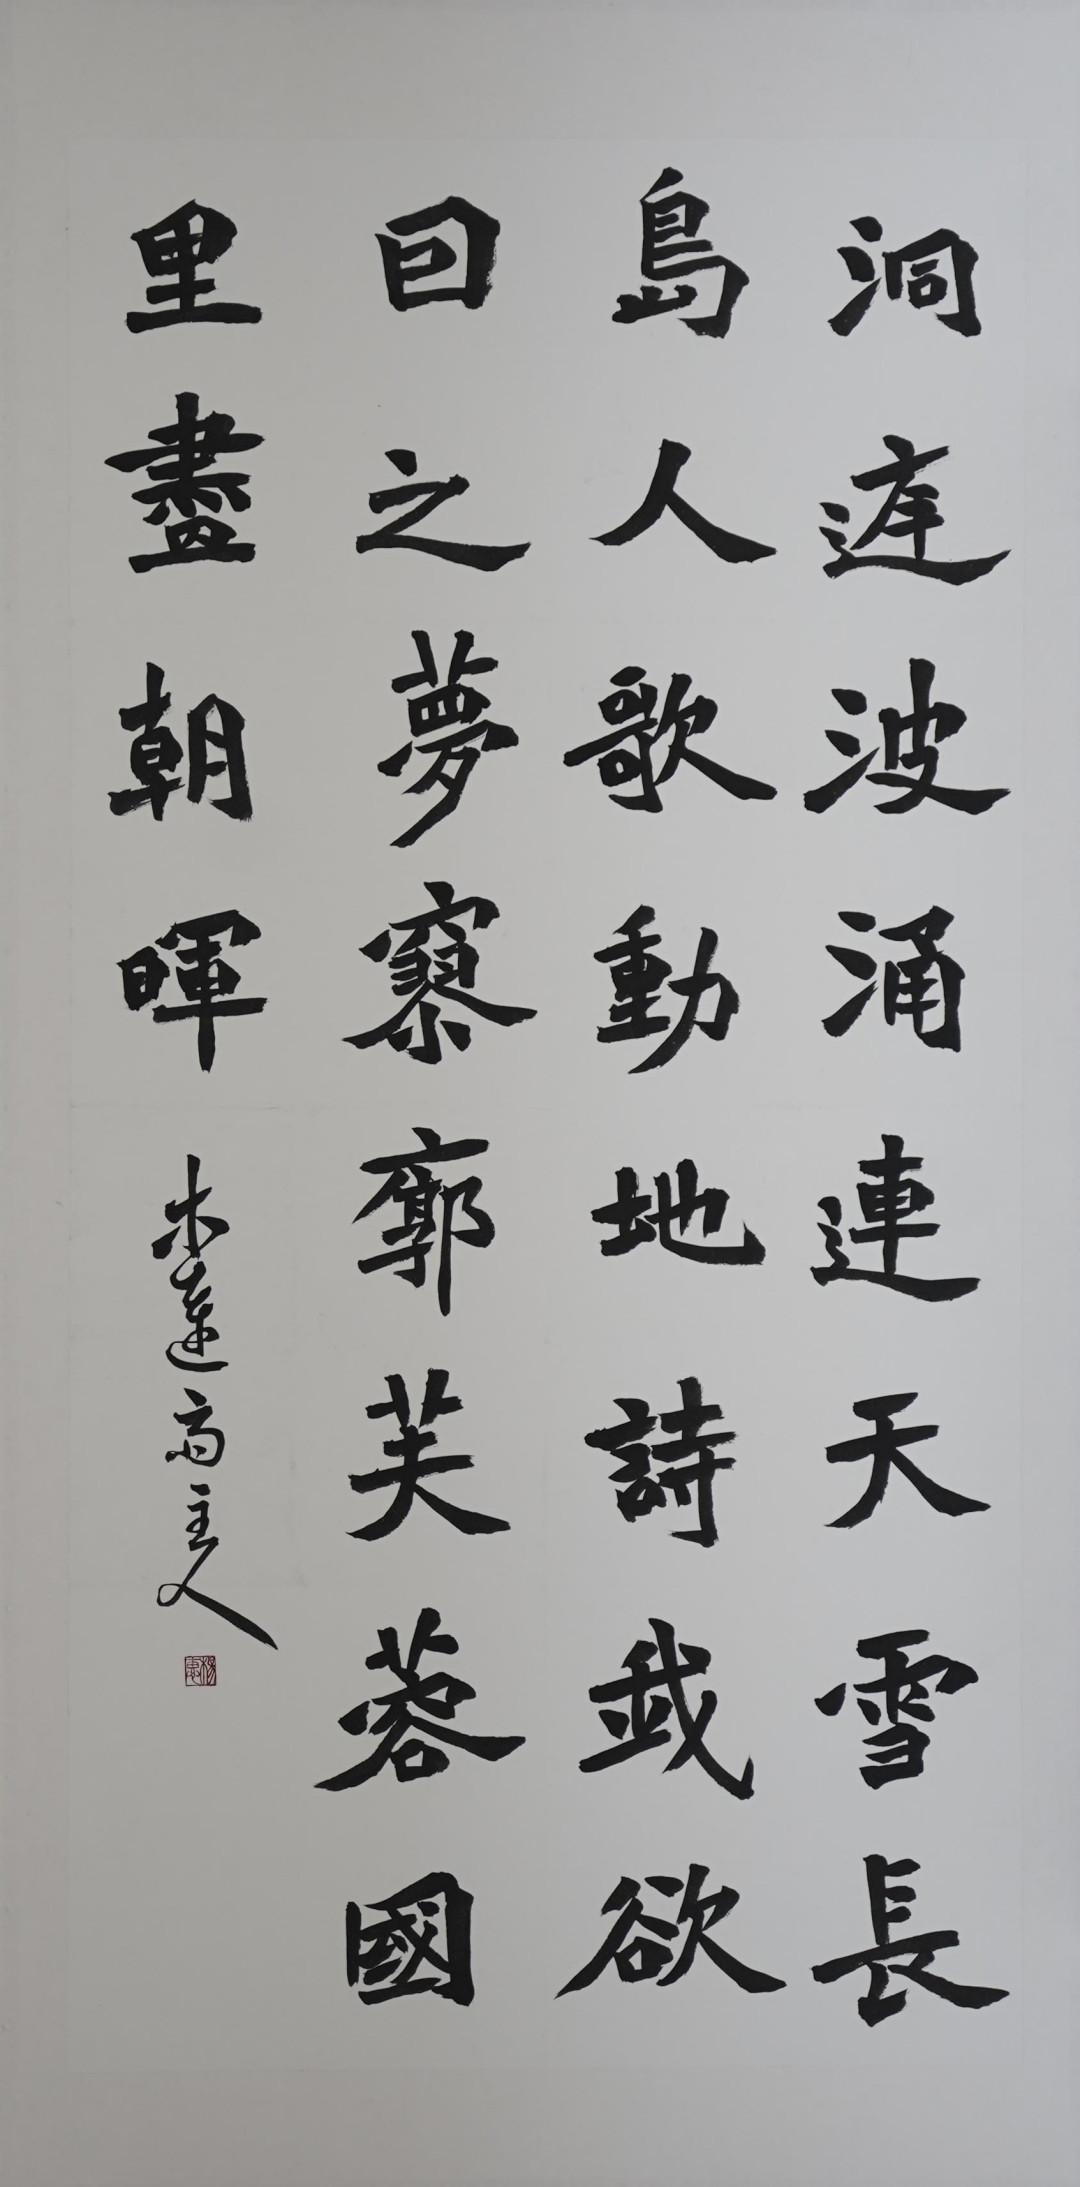 洞庭波涌連天雪長
島人歌動地詩我欲
囙之夢寥廓芙蓉國
里盡朝暉
木蓮斋主人